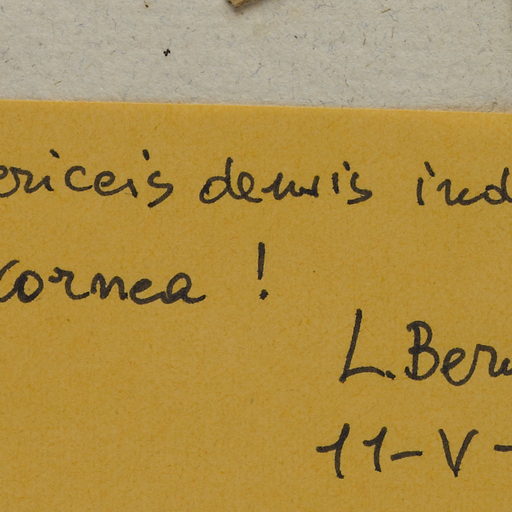 ericeis densis ind
cornea !
L. Bern
11-V-